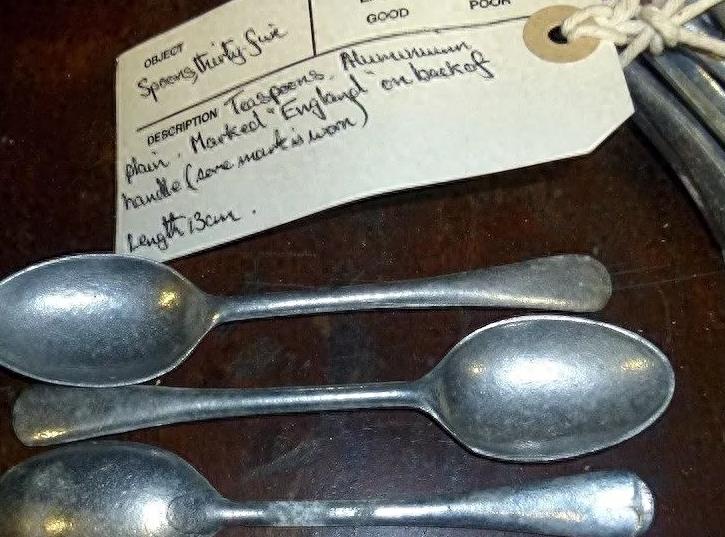 GOOD POOR
OBJECT
Spoons, thirty-five
DESCRIPTION Teaspoons. Aluminium
plain. Marked "England" on back of
handle (some mark is worn)
Length 13cm.